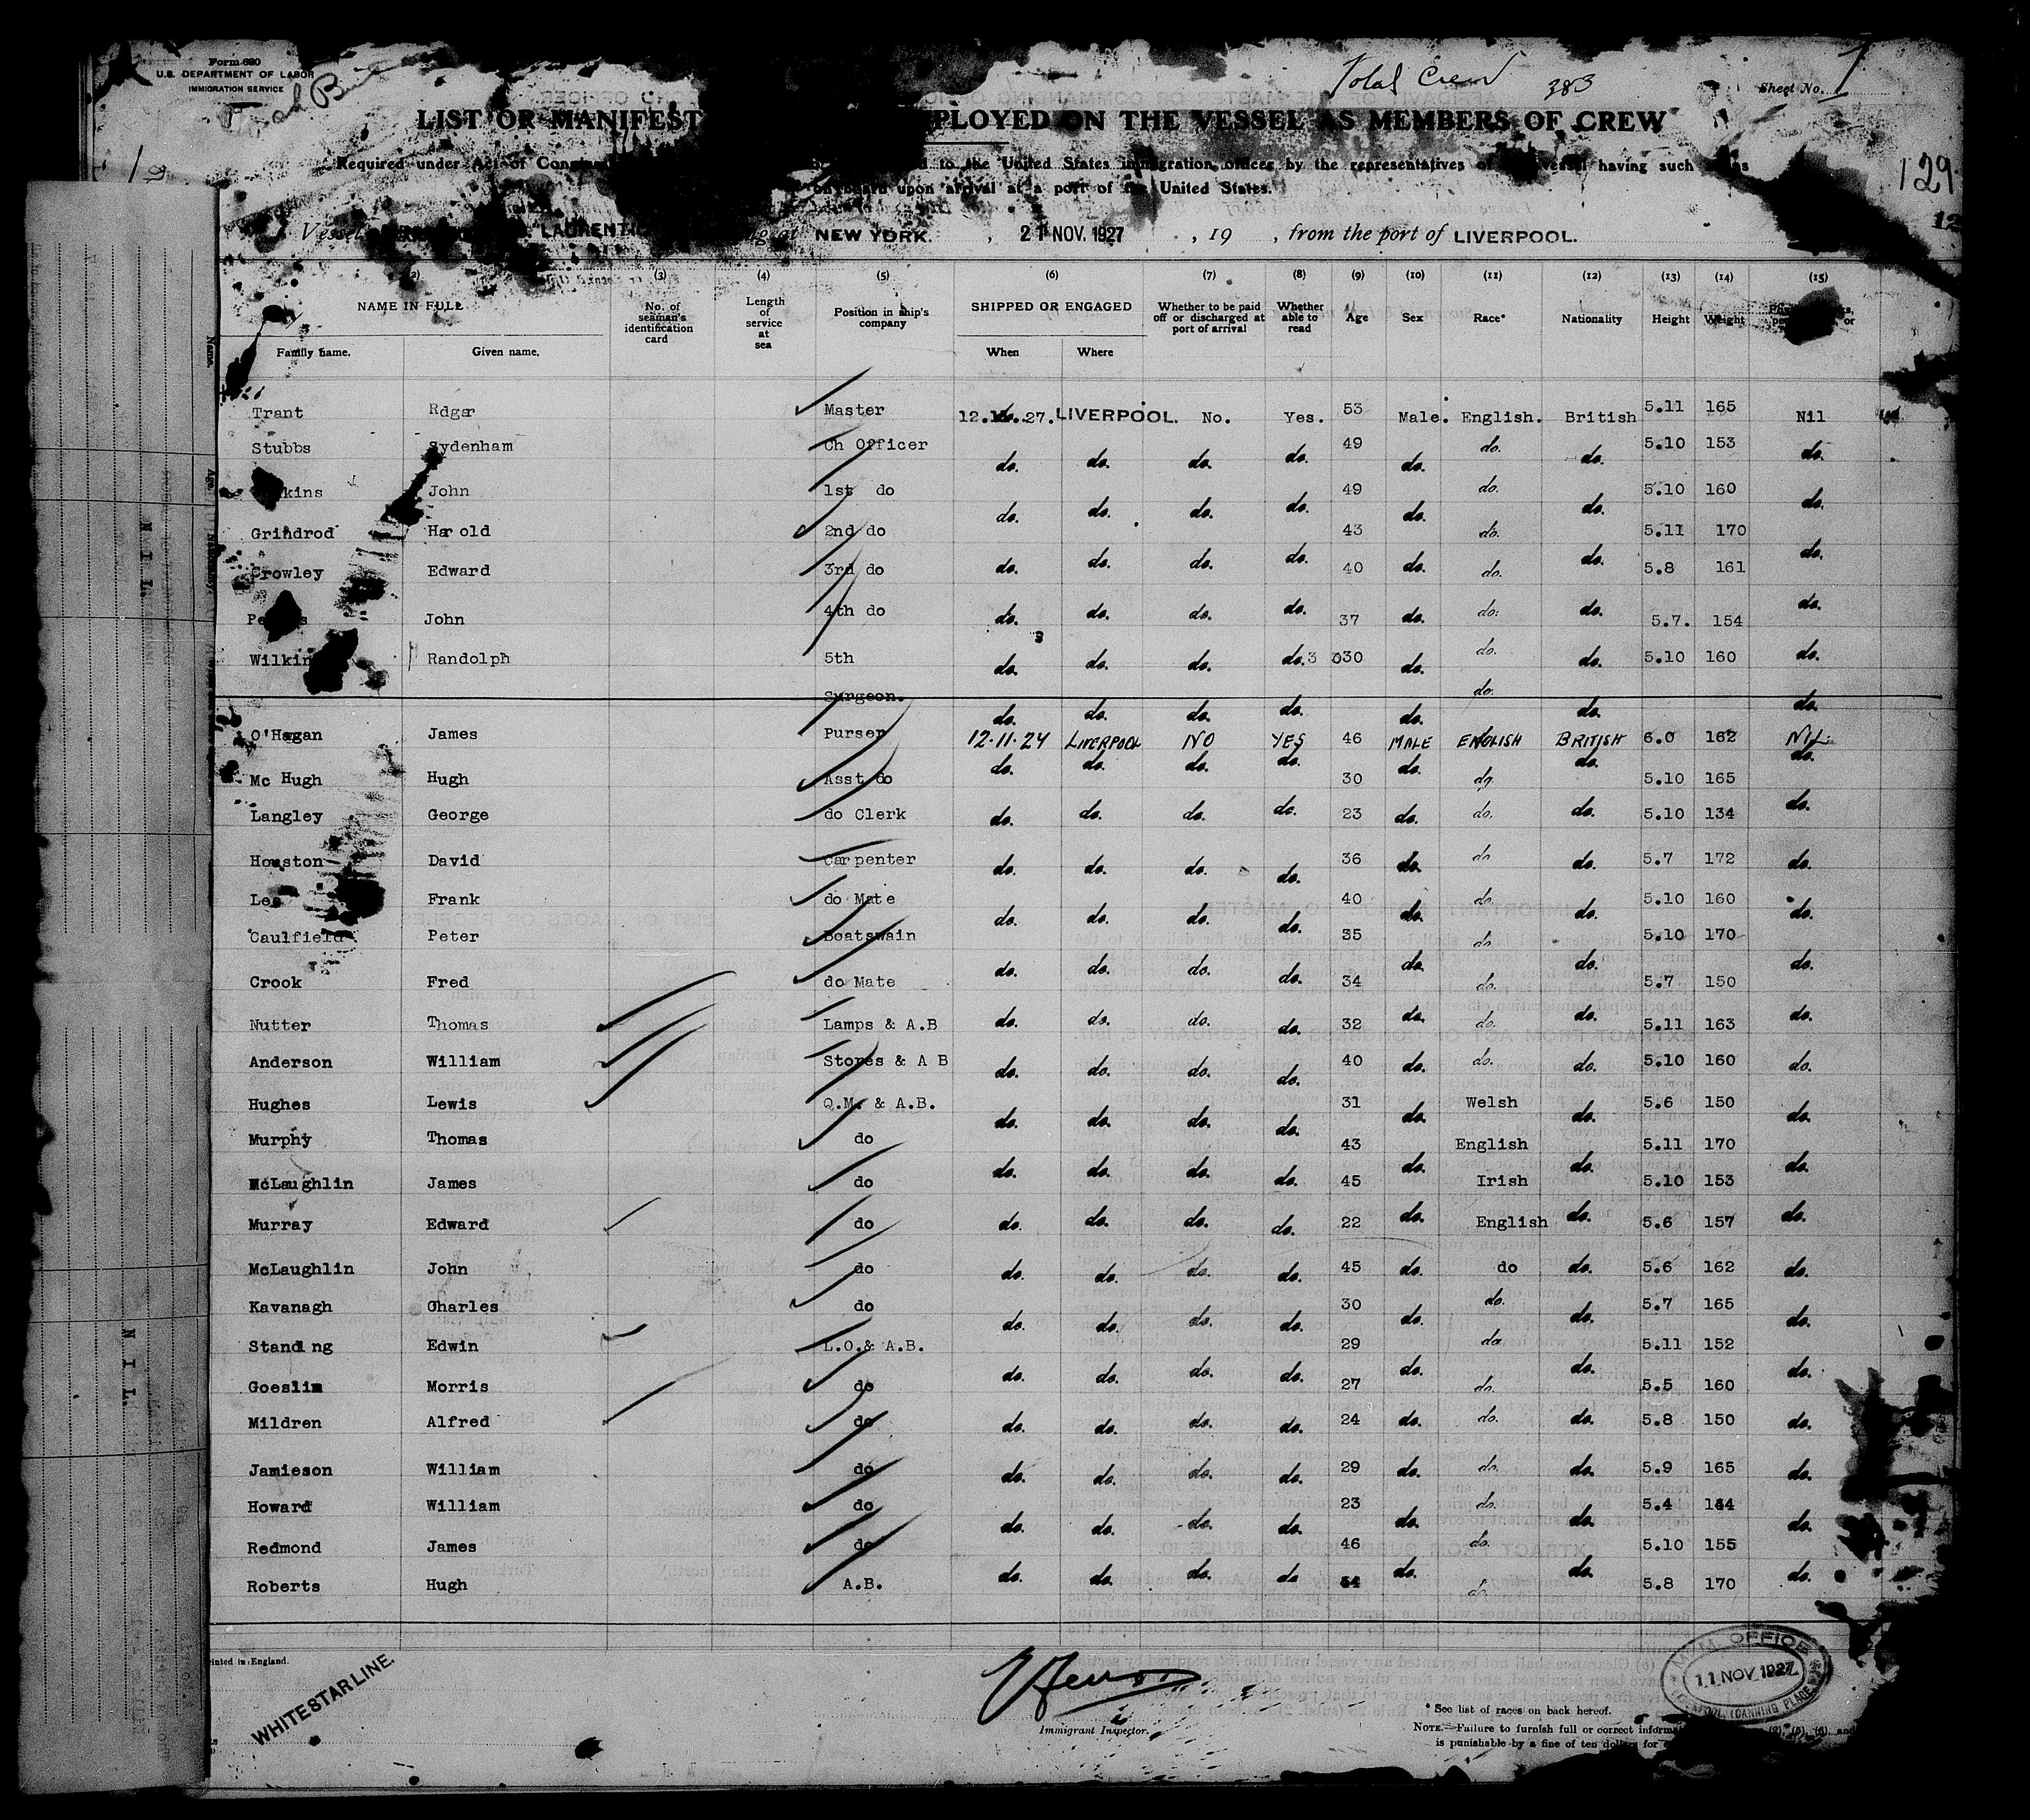 Form 680
U.S. DEPARTMENT OF LABOR
IMMIGRATION SERVICE
Total Crew 383
Sheet No. 1
LIST OR MANIFEST PLOYED ON THE VESSEL AS MEMBERS OF CREW
Required under Act of to the United States immigration officer by the representatives of vessel having such
on board upon arrival at a port of the United States.
129
12
Vessel LAURENTIC at NEW YORK. , 21 NOV. 1927 , 19 , from the port of LIVERPOOL.
(2) (3) (4) (5) (6) (7) (8) (9) (10) (11) (12) (13) (14) (15)
NAME IN FULL No. of seaman's identification card Length of service at sea Position in ship's company SHIPPED OR ENGAGED Whether to be paid off or discharged at port of arrival Whether able to read Age Sex Race* Nationality Height Weight
Family name. Given name. When Where
Trant Rdgar Master 12. 27. LIVERPOOL. No. Yes. 53 Male. English. British 5.11 165 Nil
Stubbs Sydenham Ch Officer do. do. do. do. 49 do. do. do. 5.10 153 do.
kins John 1st do do. do. do. do. 49 do. do. do. 5.10 160 do.
Grindrod Harold 2nd do do. do. do. do. 43 do. do. do. 5.11 170 do.
Crowley Edward 3rd do do. do. do. do. 40 do. do. do. 5.8 161 do.
John 4th do do. do. do. do. 37 do. do. do. 5.7. 154 do.
Wilkin Randolph 5th do. do. do. do. 30 do. do. do. 5.10 160 do.
Surgeon. do. do. do. do. do. do. do. do.
O'Hagan James Purser 12.11.27 LIVERPOOL NO YES 46 MALE ENGLISH BRITISH 6.0 162 NIL
Mc Hugh Hugh Asst do do. do. do. do. 30 do. do. do. 5.10 165 do.
Langley George do Clerk do. do. do. do. 23 do. do. do. 5.10 134 do.
Houston David Carpenter do. do. do. do. 36 do. do do. 5.7 172 do.
Lee Frank do Mate do. do. do. do. 40 do. do. do. 5.10 160 do.
Caulfield Peter Boatswain do. do. do. do. 35 do. do do. 5.10 170 do.
Crook Fred do Mate do. do. do. do. 34 do. do. do. 5.7 150 do.
Nutter Thomas Lamps & A.B do. do. do. do. 32 do. do. do. 5.11 163 do.
Anderson William Stores & A B do. do. do. do. 40 do. do. do. 5.10 160 do.
Hughes Lewis Q.M. & A.B. do. do. do. do. 31 do. Welsh do. 5.6 150 do.
Murphy Thomas do do. do. do. do. 43 do. English do. 5.11 170 do.
McLaughlin James do do. do. do. do. 45 do. Irish do. 5.10 153 do.
Murray Edward do do. do. do. do. 22 do. English do. 5.6 157 do.
McLaughlin John do do. do. do. do. 45 do. do do. 5.6 162 do.
Kavanagh Charles do do. do. do. do. 30 do. do. do. 5.7 165 do.
Standing Edwin L.O.& A.B. do. do. do. do. 29 do. do. do. 5.11 152 do.
Goeslin Morris do do. do. do. do. 27 do. do. do. 5.5 160 do.
Mildren Alfred do do. do. do. do. 24 do. do. do. 5.8 150 do.
Jamieson William do do. do. do. do. 29 do. do. do. 5.9 165 do.
Howard William do do. do. do. do. 23 do. do. do. 5.4 144 do.
Redmond James do do. do. do. do. 46 do. do. do. 5.10 155 do.
Roberts Hugh A.B. do. do. do. do 54 do. do. do. 5.8 170 do.
Printed in England.
WHITE STAR LINE.
Immigrant Inspector.
M.M. OFFICE
11 NOV 1927
LIVERPOOL, (CANNING PLACE)
* See list of races on back hereof.
NOTE.—Failure to furnish full or correct (2), (5), (6), and
is punishable by a fine of ten dollars for
Name.
Age.
N I L.
N I L.